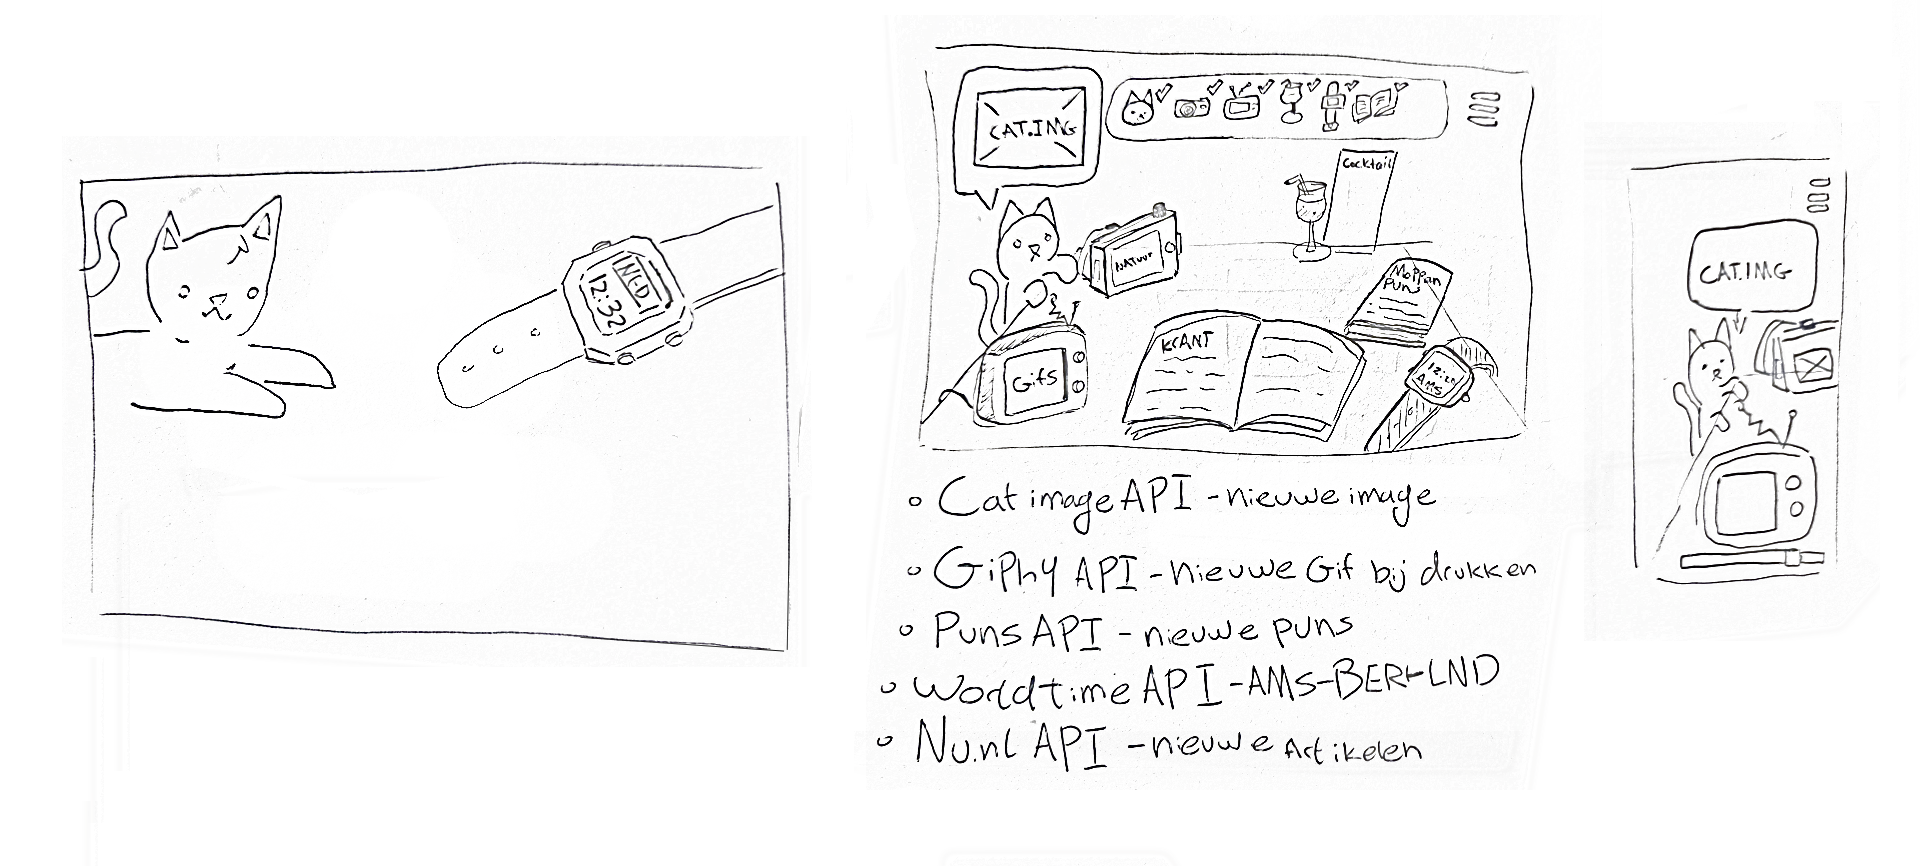 NED
12:32
CAT.IMG
Cocktail
NATUUR
Moppen
Puns
KRANT
Gifs
12:20
AMS
Cat image API - nieuwe image
GiPhy API - nieuwe Gif bij drukken
Puns API - nieuwe puns
Worldtime API - AMS - BER - LND
Nu.nl API - nieuwe Artikelen
CAT.IMG